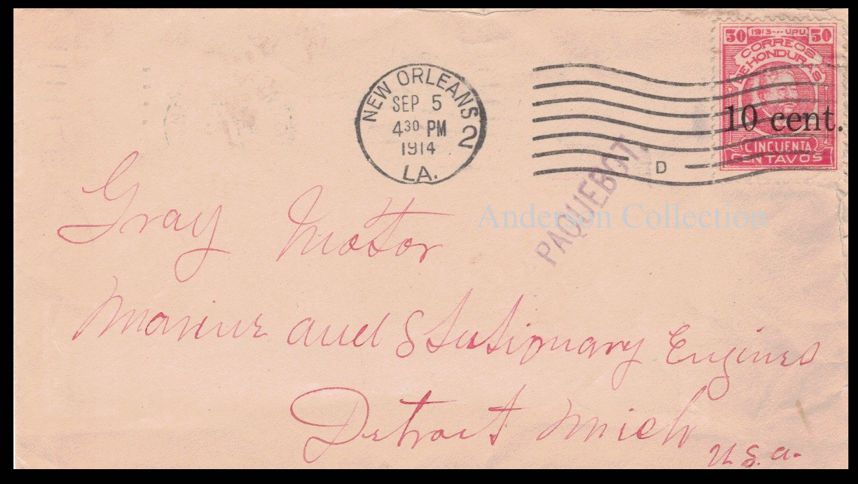 50 1913 UPU. 50
CORREOS
DE HONDURAS
10 cent.
CINCUENTA
CENTAVOS
NEW ORLEANS 2
SEP 5
4 30 PM
1914
LA.
D
PAQUEBOT.
Anderson Collection
Gray Motor
Marine and Stationary Engines
Detroit Mich
U.S.A.